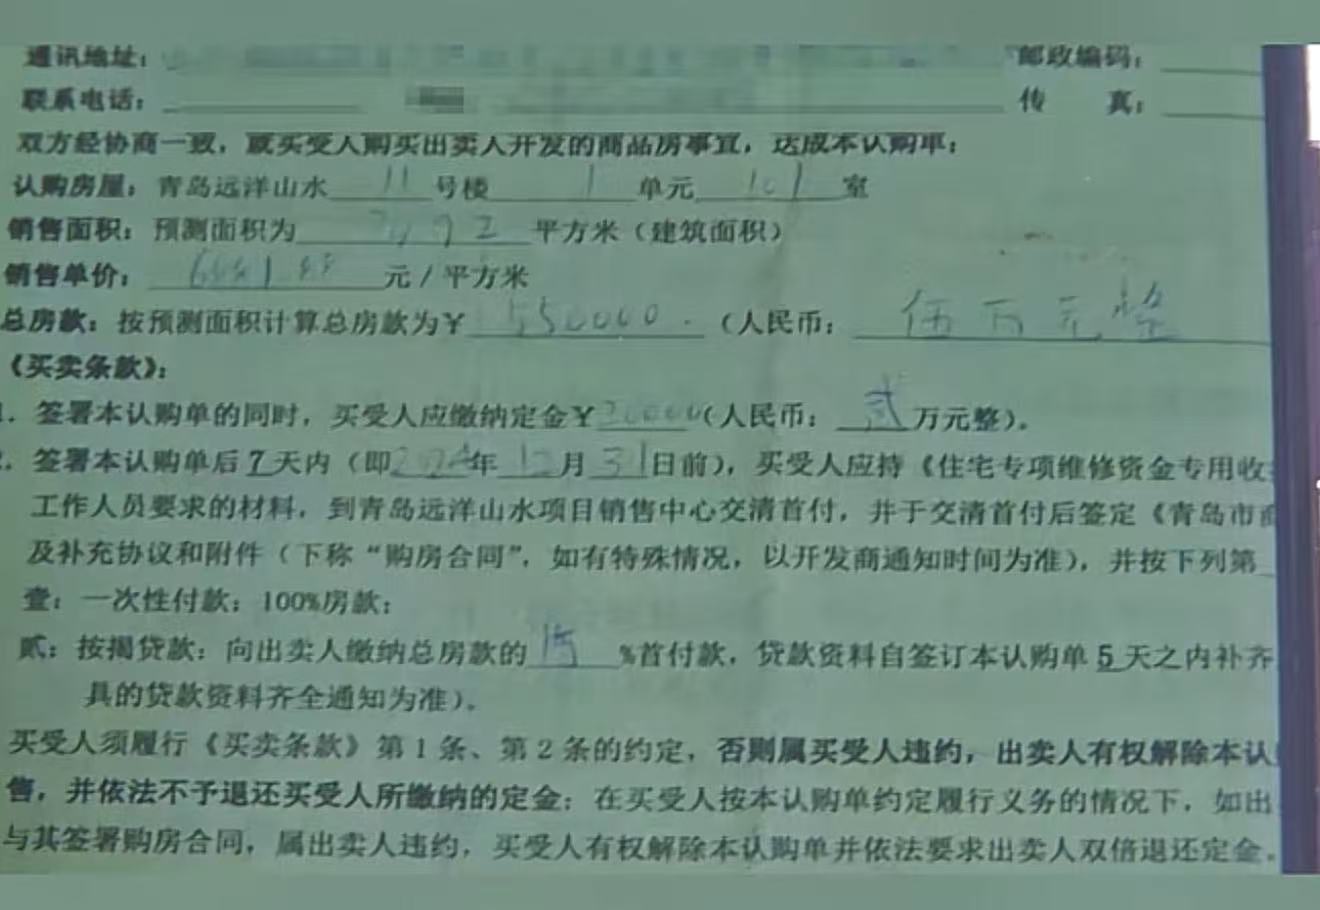 通讯地址：
邮政编码：
联系电话：
传 真：
双方经协商一致，就买受人购买出卖人开发的商品房事宜，达成本认购单：
认购房屋：青岛远洋山水 11 号楼 1 单元 101 室
销售面积：预测面积为 平方米（建筑面积）
销售单价： 元/平方米
总房款：按预测面积计算总房款为￥ 550000. （人民币： 伍万元整
《买卖条款》：
1．签署本认购单的同时，买受人应缴纳定金￥20000（人民币： 贰 万元整）。
2．签署本认购单后7天内（即 年 12 月 31 日前），买受人应持《住宅专项维修资金专用收
工作人员要求的材料，到青岛远洋山水项目销售中心交清首付，并于交清首付后签定《青岛市商
及补充协议和附件（下称“购房合同”，如有特殊情况，以开发商通知时间为准），并按下列第
壹：一次性付款：100%房款；
贰：按揭贷款：向出卖人缴纳总房款的 %首付款，贷款资料自签订本认购单5天之内补齐
具的贷款资料齐全通知为准）。
买受人须履行《买卖条款》第1条、第2条的约定，否则属买受人违约，出卖人有权解除本认
售，并依法不予退还买受人所缴纳的定金；在买受人按本认购单约定履行义务的情况下，如出
与其签署购房合同，属出卖人违约，买受人有权解除本认购单并依法要求出卖人双倍退还定金。